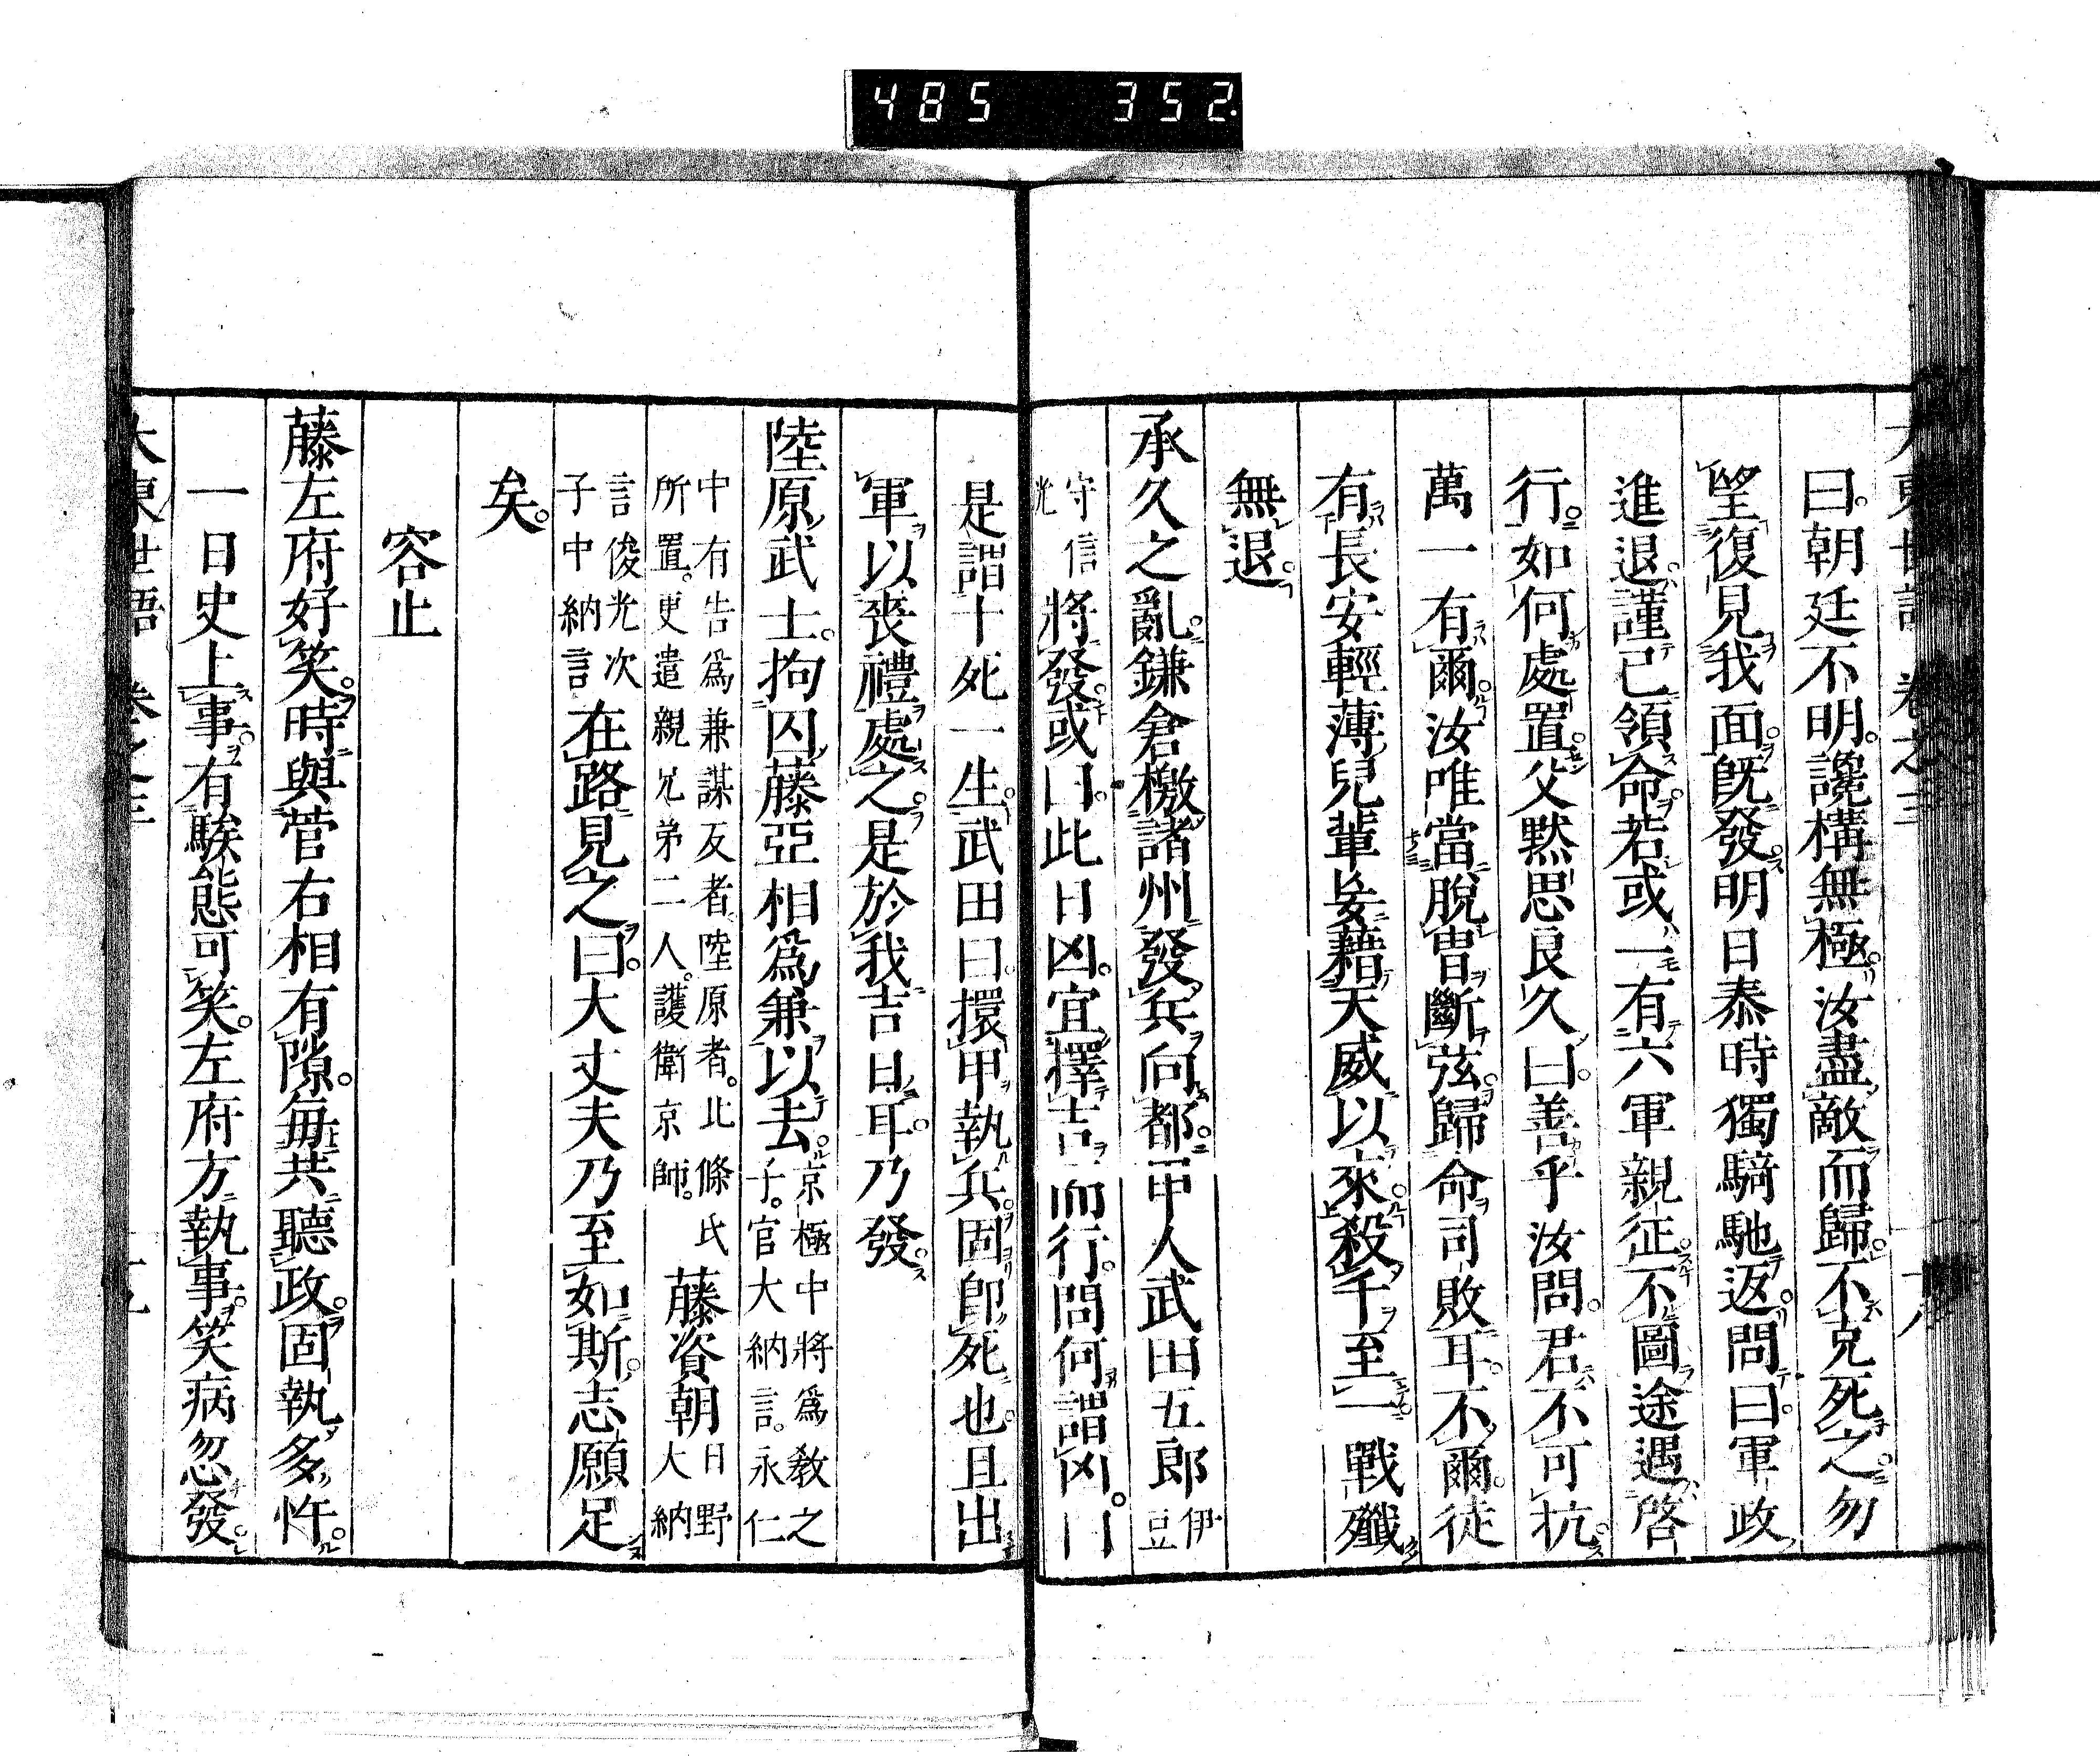 485 352
曰。朝廷不明。讒構無極。汝盡敵而歸。不克死之。勿
望復見我面。既發。明日泰時獨騎馳返。問曰。軍政
進退。謹已領命。若或一有六軍親征。不圖途遇。啓
行。如何處置。父默思良久曰。善乎汝問。君不可抗。
萬一有爾。汝唯當脫冑斷弦。歸命司敗耳。不爾。徒
有長安輕薄兒輩妄藉天威以來。殺千至一。戰殲
無退。
承久之亂。鎌倉檄諸州發兵向都。甲人武田五郎伊豆
守信光將發。或曰。此日凶。宜擇吉而行。問何謂凶。曰
是謂十死一生。武田曰。擐甲執兵。固即死也。且出
軍以喪禮處之。是於我吉日耳。乃發。
陸原武士。拘囚藤亞相爲兼以去。京極中將爲敎之子。官大納言。永仁
中有告爲兼謀反者。陸原者。北條氏所置。更遣親兄弟二人。護衛京師。藤資朝日野大納
言俊光次子中納言在路見之曰。大丈夫乃至如斯。志願足
矣。
容止
藤左府好笑。時與菅右相有隙。每共聽政。固執多忤。
一日史上事。有騃態可笑。左府方執事。笑病忽發。
大東世語 卷之三